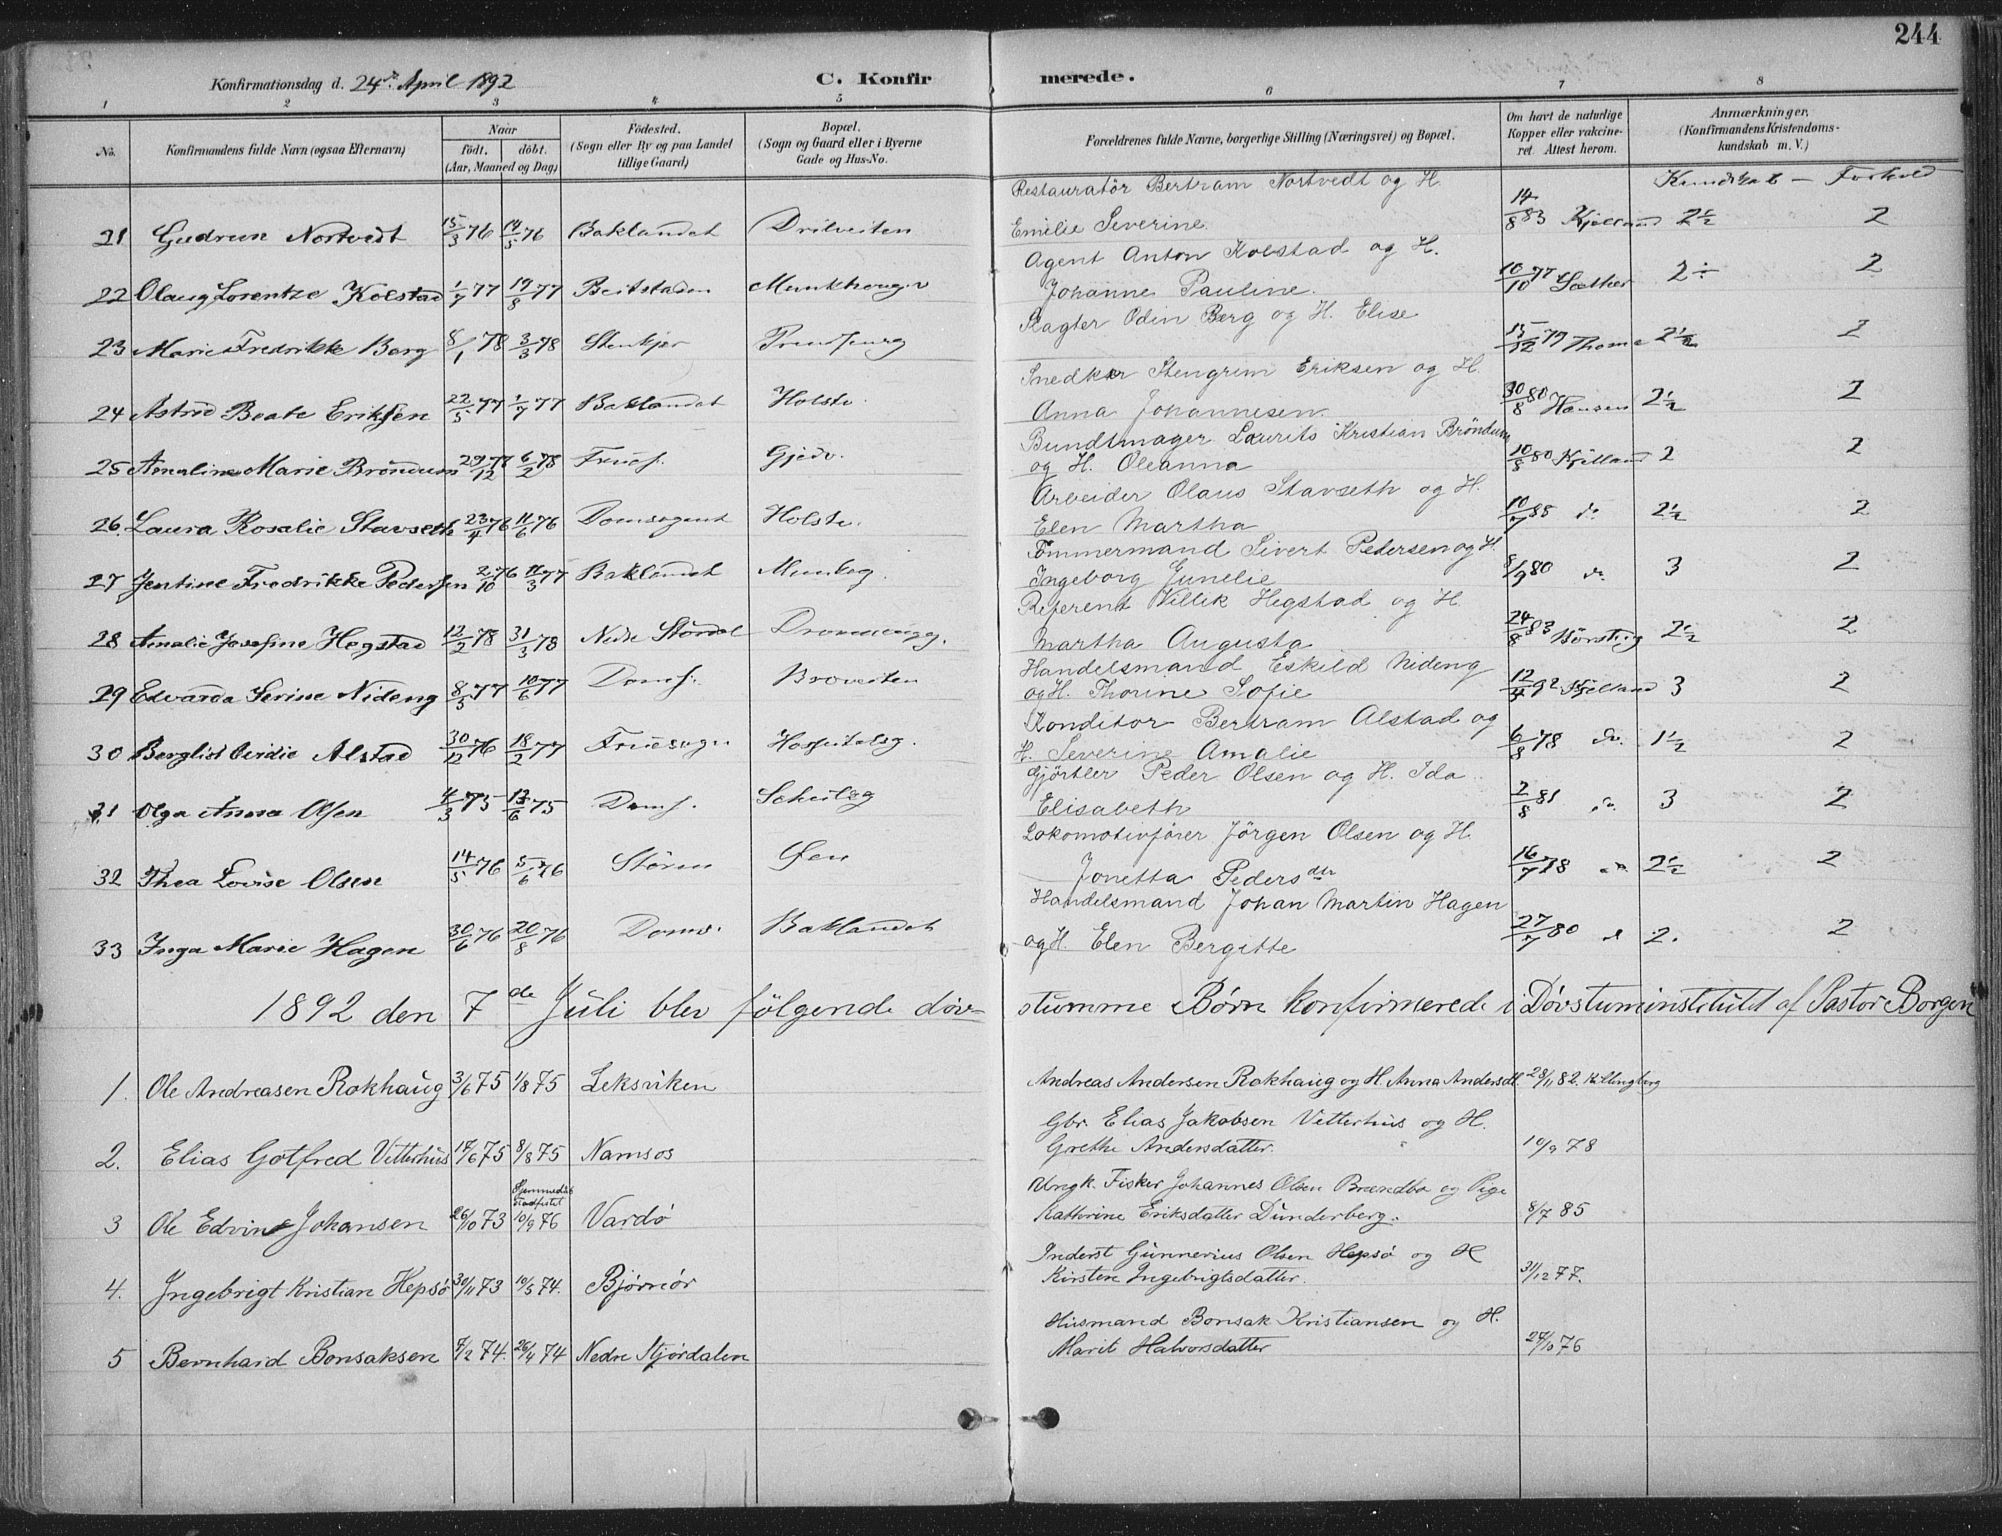 244
Konfirmationsdag d. 24de April 1892
C. Konfirmerede.
1 2 3 4 5 6 7 8
No. Konfirmandens fulde Navn (ogsaa Efternavn) Naar født. døbt. (Aar, Maaned og Dag) Fødested. (Sogn eller By og paa Landet tillige Gaard) Bopæl. (Sogn og Gaard eller i Byerne Gade og Hus-No. Forældrenes fulde Navne, borgerlige Stilling (Næringsvei) og Bopæl. Om havt de naturlige Kopper eller vakcineret. Attest herom. Anmærkninger. (Konfirmandens Kristendomskundskab m. V.)
Kundskab — Forhold
Restauratör Bertram Nortvedt og H.
21 Gudrun Nortvedt 15/3 76 14/5 76 Baklandet Drilveiten Emilie Severine 14/8 83 Kjelland 2½ 2
Agent Anton Kolstad og H.
22 Olaug Lorentze Kolstad 1/7 77 19/8 77 Beitstaden Munkhaugv Johanne Pauline. 10/10 77 Sæther 2÷ 2
Slagter Odin Berg og H. Elise
23 Marie Fredrikke Berg 8/1 78 3/3 78 Stenkjer 15/12 79 Thome 2½ 2
Snedker Stengrim Eriksen og H.
24 Astrid Beate Eriksen 22/5 77 1/7 77 Baklandet Holste. Anna Johannesen. 30/8 80 Hansen 2½ 2
Bundtmager Laurits Kristian Bröndum
25 Amaline Marie Bröndum 29/12 77 6/2 78 Frues. Gjedv. og H. Oleanna 10/8 80 Kjelland 2 2
Arbeider Olaus Stavseth og H.
26. Laura Rosalie Stavseth 23/4 76 11/6 76 Domsogent Holste. Elen Martha 10/7 85 do 2½ 2
Tømmermand Sivert Pedersen og H.
27 Jentine Fredrikke Pedersen 2/10 76 11/3 77 Baklandet Munkeg. Ingeborg Junelie 8/9 80 do. 3 2
Referent Villik Hegstad og H
28 Amalie Josefine Hegstad 12/2 78 31/3 78 Nedre Stördal Dronningg. Martha Augusta 24/8 83 2½ 2
Handelsmand Eskild Nideng
29 Edvarda Serine Nideng 8/3 77 10/6 77 Doms. Broveiten og H. Thorine Sofie 12/4 92 Kjelland 3 2
Konditor Bertram Alstad og
30 Bergliot Ovidie Alstad 30/12 76 18/2 77 Fruesogn Hospitalsg. H. Severine Amalie 6/8 78 do. 1½ 2
Gjörtler Peder Olsen og H. Ida
31 Olga Anna Olsen 4/3 75 13/6 75 Doms. Elisabeth 2/8 81 do. 3 2
Lokomotivfører Jörgen Olsen og H.
32 Thea Lovise Olsen 14/5 76 5/6 76 Støren Øen Jonetta Pedersdtr 16/7 78 do 2½ 2
Handelsmand Johan Martin Hagen
33 Inga Marie Hagen 30/6 76 20/8 76 Doms. Baklandet og H. Elen Bergitte 27/7 80 d 2. 2
1892 den 7de Juli blev følgende døvstumme Børn konfirmerede i Døvstuminstitutet af Pastor Borgen
1. Ole Andreasen Rokhaug 3/6 75 1/8 75 Leksviken Andreas Andersen Rokhaug og H. Anna Andersdt. 28/11 82. Killingberg
Gbr. Elias Jakobsen Vetterhus og H.
2. Elias Gotfred Vetterhus 17/6 75 8/8 75 Namsos Grethe Andersdatter. 10/9 78
Hjemmedøb stadfestet Ungk. Fisker Johannes Olsen Brændbo og Pige
3 Ole Edvin Johansen 26/10 73 10/9 76 Vardø Kathrine Eriksdatter Dunderberg. 8/7 85
Inderst Gunnerius Olsen Hepsø og H
4. Ingebrigt Kristian Hepsø 30/11 73 10/5 74. Bjørnør Kirsten Ingebrigtsdatter. 31/12 77.
Husmand Bonsak Kristiansen og H.
5 Bernhard Bonsaksen 7/2 74. 26/4 74 Nedre Stjørdalen Marit Halvorsdatter 27/10 76